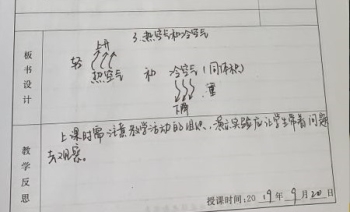 3.热空气和冷空气
板书设计
上升
轻 热空气 和 冷空气(同体积)
重
下降
教学反思
上课时需注意教学活动的组织,
实验应让学生带着问题
去观察。
授课时间:2019年9月20日